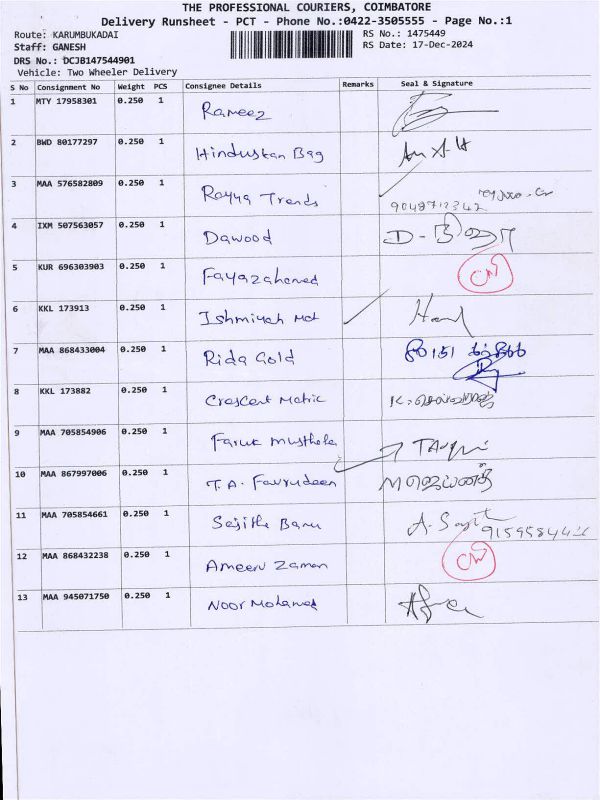 THE PROFESSIONAL COURIERS, COIMBATORE
Delivery Runsheet - PCT - Phone No.:0422-3505555 - Page No.:1
Route: KARUMBUKADAI
Staff: GANESH
DRS No.: DCJB147544901
Vehicle: Two Wheeler Delivery
RS No.: 1475449
RS Date: 17-Dec-2024
S No Consignment No Weight PCS Consignee Details Remarks Seal & Signature
1 MTY 17958301 0.250 1 Rameez
2 BWD 80177297 0.250 1 Hindustan Bag
3 MAA 576582809 0.250 1 Rayya Trends
9048712342
4 IXM 507563057 0.250 1 Dawood
5 KUR 696303903 0.250 1 Fayazahamed
6 KKL 173913 0.250 1 Ishmiyah Mat
7 MAA 868433004 0.250 1 Rida Gold
8 KKL 173882 0.250 1 Crescent Matric
9 MAA 705854906 0.250 1 Faruk Musthafa
10 MAA 867997006 0.250 1 T.A. Favrudeen
11 MAA 705854661 0.250 1 Sajitha Banu
12 MAA 868432238 0.250 1 Ameeru Zaman
13 MAA 945071750 0.250 1 Noor Mohamed